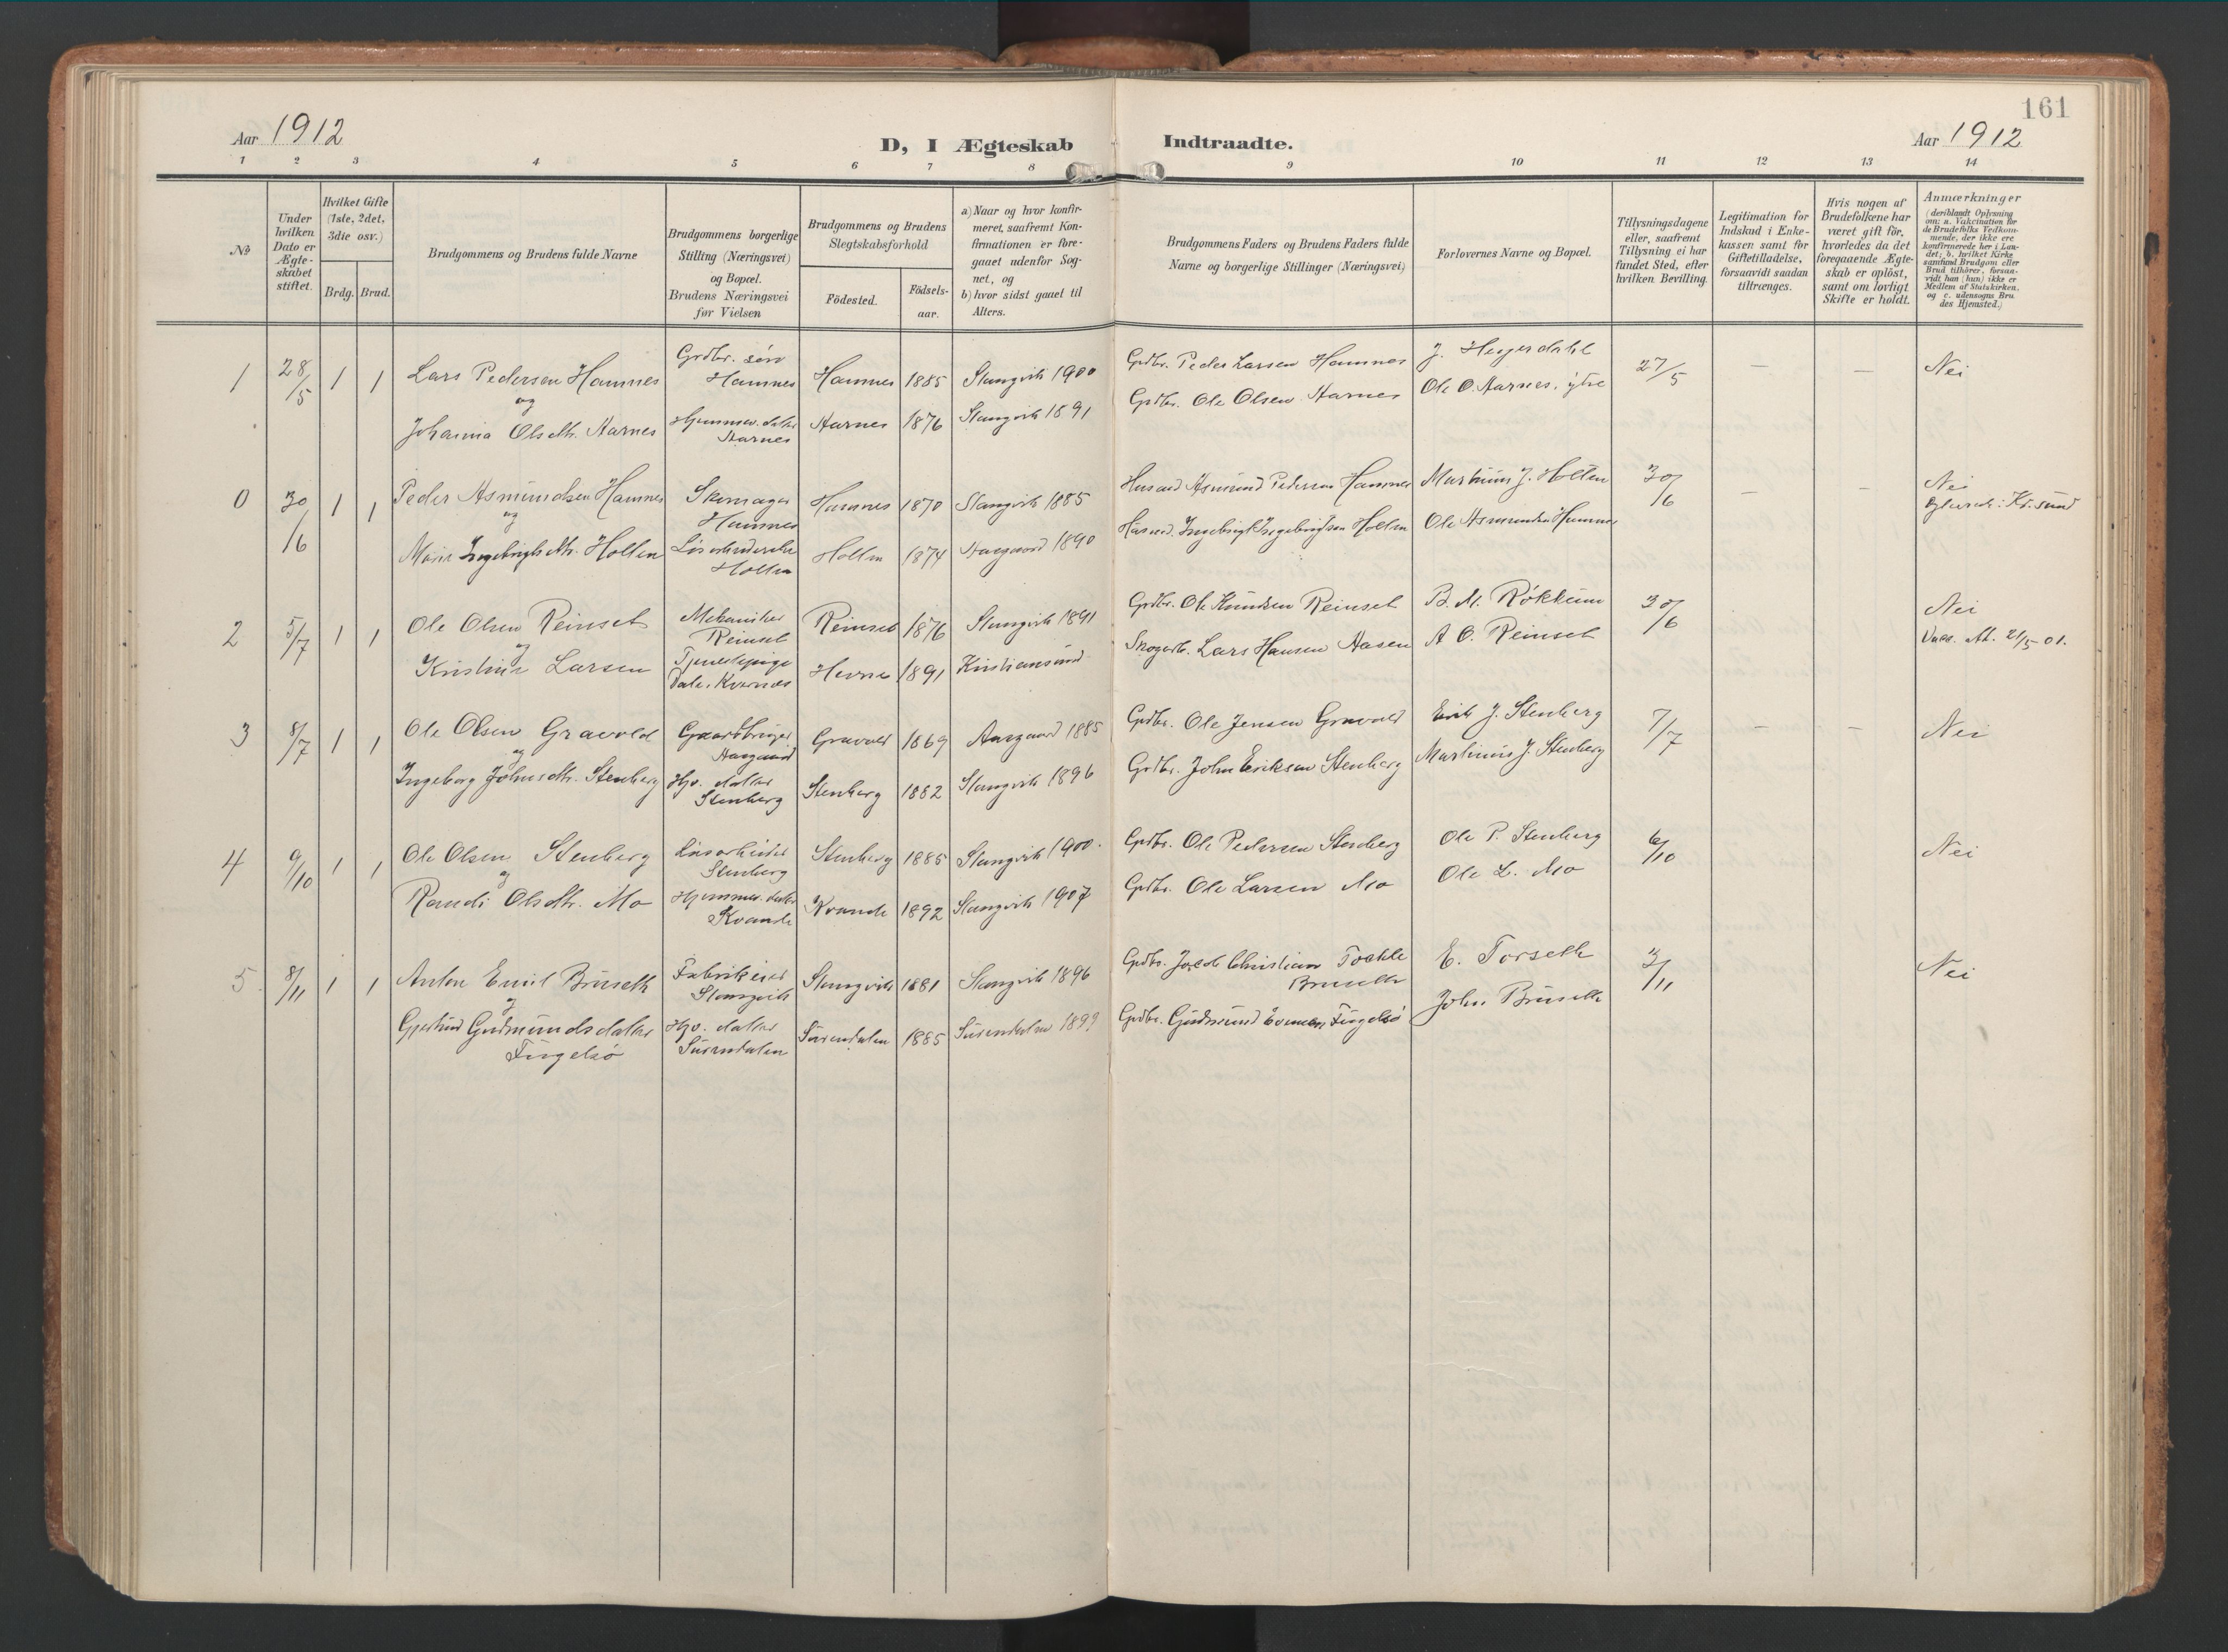 161
Aar 1912
D, I Ægteskab Indtraadte.
Aar 1912
1 2 3 4 5 6 7 8 9 10 11 12 13 14
No
Under hvilken Dato er Ægte-skabet stiftet.
Hvilket Gifte (1ste, 2det, 3die osv.)
Brdg. Brud.
Brudgommens og Brudens fulde Navne
Brudgommens borgerlige Stilling (Næringsvei) og Bopæl. Brudens Næringsvei før Vielsen
Brudgommens og Brudens Slegtskabsforhold
Födested. Födsels-aar.
a) Naar og hvor konfir-meret, saafremt Kon-firmationen er fore-gaaet udenfor Sog-net, og
b) hvor sidst gaaet til Alters.
Brudgommens Faders og Brudens Faders fulde Navne og borgerlige Stillinger (Næringsvei)
Forlovernes Navne og Bopæl.
Tillysningsdagene eller, saafremt Tillysning ei har fundet Sted, efter hvilken Bevilling.
Legitimation for Indskud i Enke-kassen samt for Giftetilladelse, forsaavidt saadan tiltrænges.
Hvis nogen af Brudefolkene har været gift før, hvorledes da det foregaaende Ægte-skab er opløst, samt om lovligt Skifte er holdt.
Anmærkninger
(deriblandt Oplysning om: a. Vakcination for de Brudefolks Vedkom-mende, der ikke ere konfirmerede her i Lan-det; b. hvilket Kirke samfund Brudgom eller Brud tilhører, forsaa-vidt han (hun) ikke er Medlem af Statskirken, og c. udensogns Bru des Hjemsted.)
1 28/5 1 1 Lars Pedersen Hamnes Grdbr. søn Hamnes Hamnes 1885 Stangvik 1900 Grdbr. Peder Larsen Hamnes 27/5 — — Nei
og
Johanna Olsdtr. Aarnes Hjemmev. datter Aarnes Aarnes 1876 Stangvik 1891 Grdbr. Ole Olsen Aarnes Ole O. Aarnes, ytre
0 30/6 1 1 Peder Asmundsen Hamnes Skomager Hamnes Hamnes 1870 Stangvik 1885 Husmd. Asmund Pedersen Hamnes Martinus J. Holten 30/6 — — Nei
og
Marie Ingebrigtsdtr. Holten Holten 1874 Aasgaard 1890 Husmd. Ingebrigt Ingebrigtsen Holten Ole Asmundsen Hamnes
2 5/7 1 1 Ole Olsen Reinset Mekaniker Reinset Reinset 1876 Stangvik 1891 Grdbr. Ole Knudsen Reinset B. M. Røkkum 30/6 Nei
og
Kristine Larsen Tjenestepige Dale, Kvernes Hevne 1891 Kristiansund Lars Hansen Aasen A O. Reinset Vacc. Att. 21/5 01.
3 8/7 1 1 Ole Olsen Gravold Gaardbruger Aasgaard Gravold 1869 Aasgaard 1885 Grdbr. Ole Jensen Gravold Erik J. Stenberg 7/7 — — Nei
og
Ingeborg Johnsdtr. Stenberg Hjv. datter Stenberg Stenberg 1882 Stangvik 1896 Grdbr. John Eriksen Stenberg Martinus J. Stenberg
4 9/10 1 1 Ole Olsen Stenberg Løsarbeider Stenberg Stenberg 1885 Stangvik 1900. Grdbr. Ole Pedersen Stenberg Ole P. Stenberg 6/10 Nei
og
Randi Olsdtr. Mo Hjemmev. datter Kvande Kvande 1892 Stangvik 1907 Grdbr. Ole Larsen Mo Ole L. Mo
5 8/11 1 1 Anton Emil Bruseth Fabrikeier Stangvik Stangvik 1881 Stangvik 1896 Grdbr. Jacob Christian Bruseth E. Torseth 3/11 Nei
og
Gjertrud Gudmundsdatter Hjv. datter Surendalen Surendalen 1885 Surendalen 1899 Grdbr. Gudmund John Bruseth